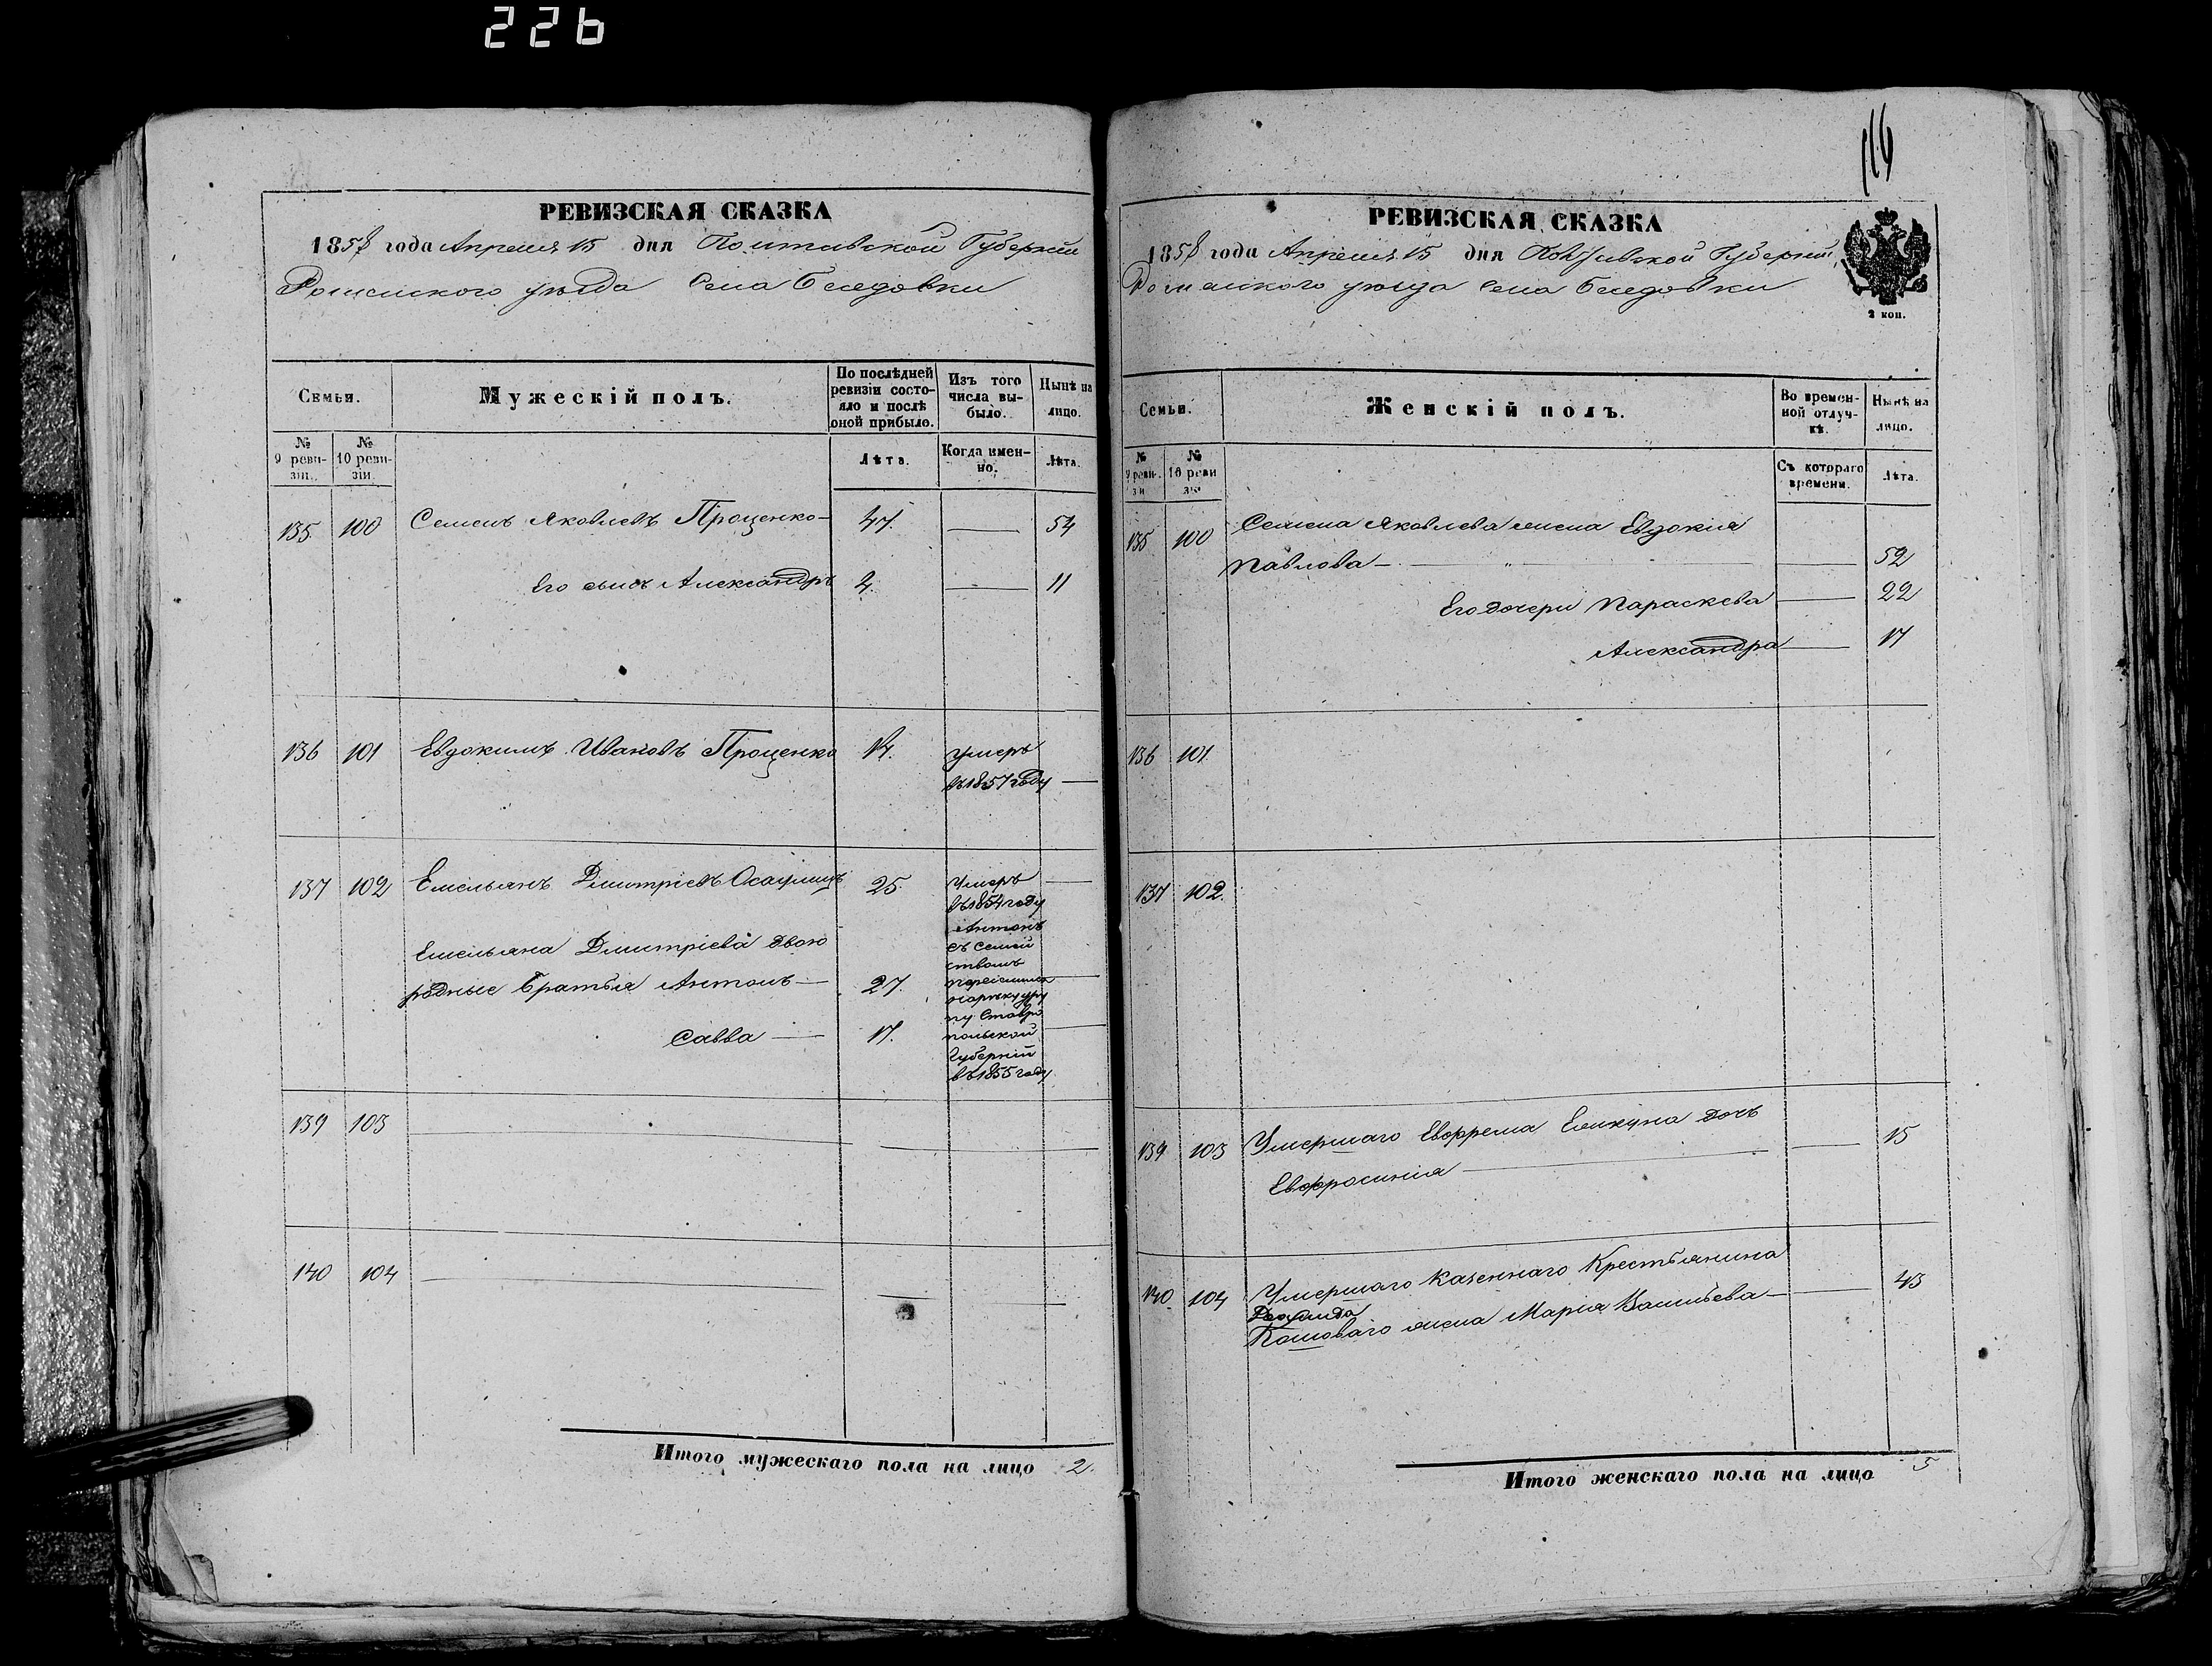 226
РЕВИЗСКАЯ СКАЗКА
1858 года Апреля 15 дня Полтавской Губерніи
Роменского уѣзда Села Беседовки
Семьи.
Мужескій полъ.
По послѣдней ревизіи состояло и послѣ оной прибыло.
Изъ того числа выбыло.
Нынѣ на лицо.
№ 9 ревизіи.
№ 10 ревизіи.
Лѣта.
Когда именно.
Лѣта.
135 100 Семенъ Яковлевъ Проценко 47. 54
Его сынъ Александръ 4. 11
136 101 Евдокимъ Ивановъ Проценко 14. умеръ
въ 1857 году
137 102 Емельянъ Дмитріевъ 25. Умеръ
въ 1854 году
Емельяна Дмитріева двою
родные братья Антонъ 27.
Савва 17.
Антонъ
съ семей
ствомъ
на реку
Ставро
польской
Губерніи
въ 1855 году
139 103
140 104
Итого мужескаго пола на лицо 2.
116
РЕВИЗСКАЯ СКАЗКА
1858 года Апреля 15 дня Полтавской Губерніи
Роменского уѣзда Села Беседовки
2 коп.
Семьи.
Женскій полъ.
Во временной отлучкѣ.
Нынѣ на лицо.
№ 9 ревизіи
№ 10 ревизіи
Съ котораго времени.
Лѣта.
135 100 Семена Яковлева жена Евдокія
Павлова 52
Его дочери Параскева 22
Александра 17
136 101.
137 102.
139 103 Умершаго Евфрема дочь 15
Евфросинія
140 104 Умершаго казеннаго Крестьянина 43
жена Марія Васильева
Итого женскаго пола на лицо 5